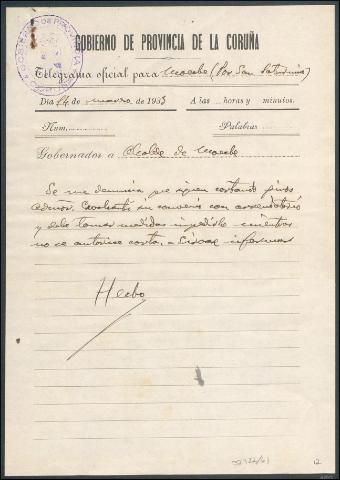 GOBIERNO DE PROVINCIA DE LA CORUÑA
Telegrama oficial para Moeche (Por San Saturnino)
Día 14 de marzo de 1933 A las horas y minutos.
Núm. Palabras
Gobernador a Alcalde de Moeche
Se me denuncia que siguen cortando pinos
su convenio con arrendatario
y debe tomar medidas impedirlo mientras
no se autorice corta.
Hecho
12